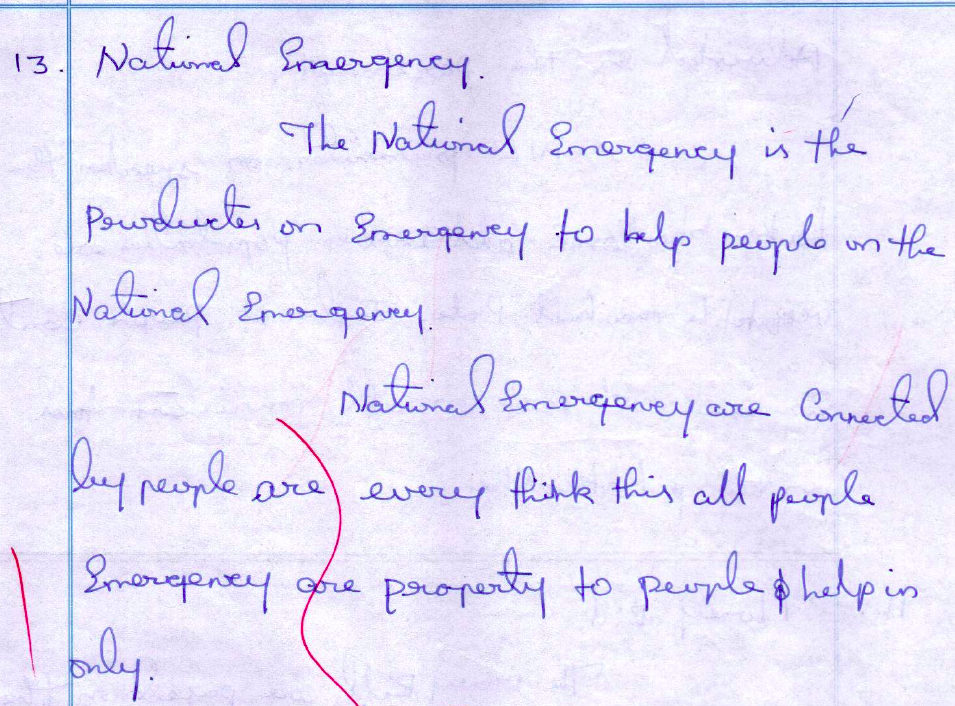 13. National Emergency.
The National Emergency is the
Producter on Emergency to help people on the
National Emergency.
National Emergency are Connected
by people are every think this all people
Emergency are property to people & help in
only.